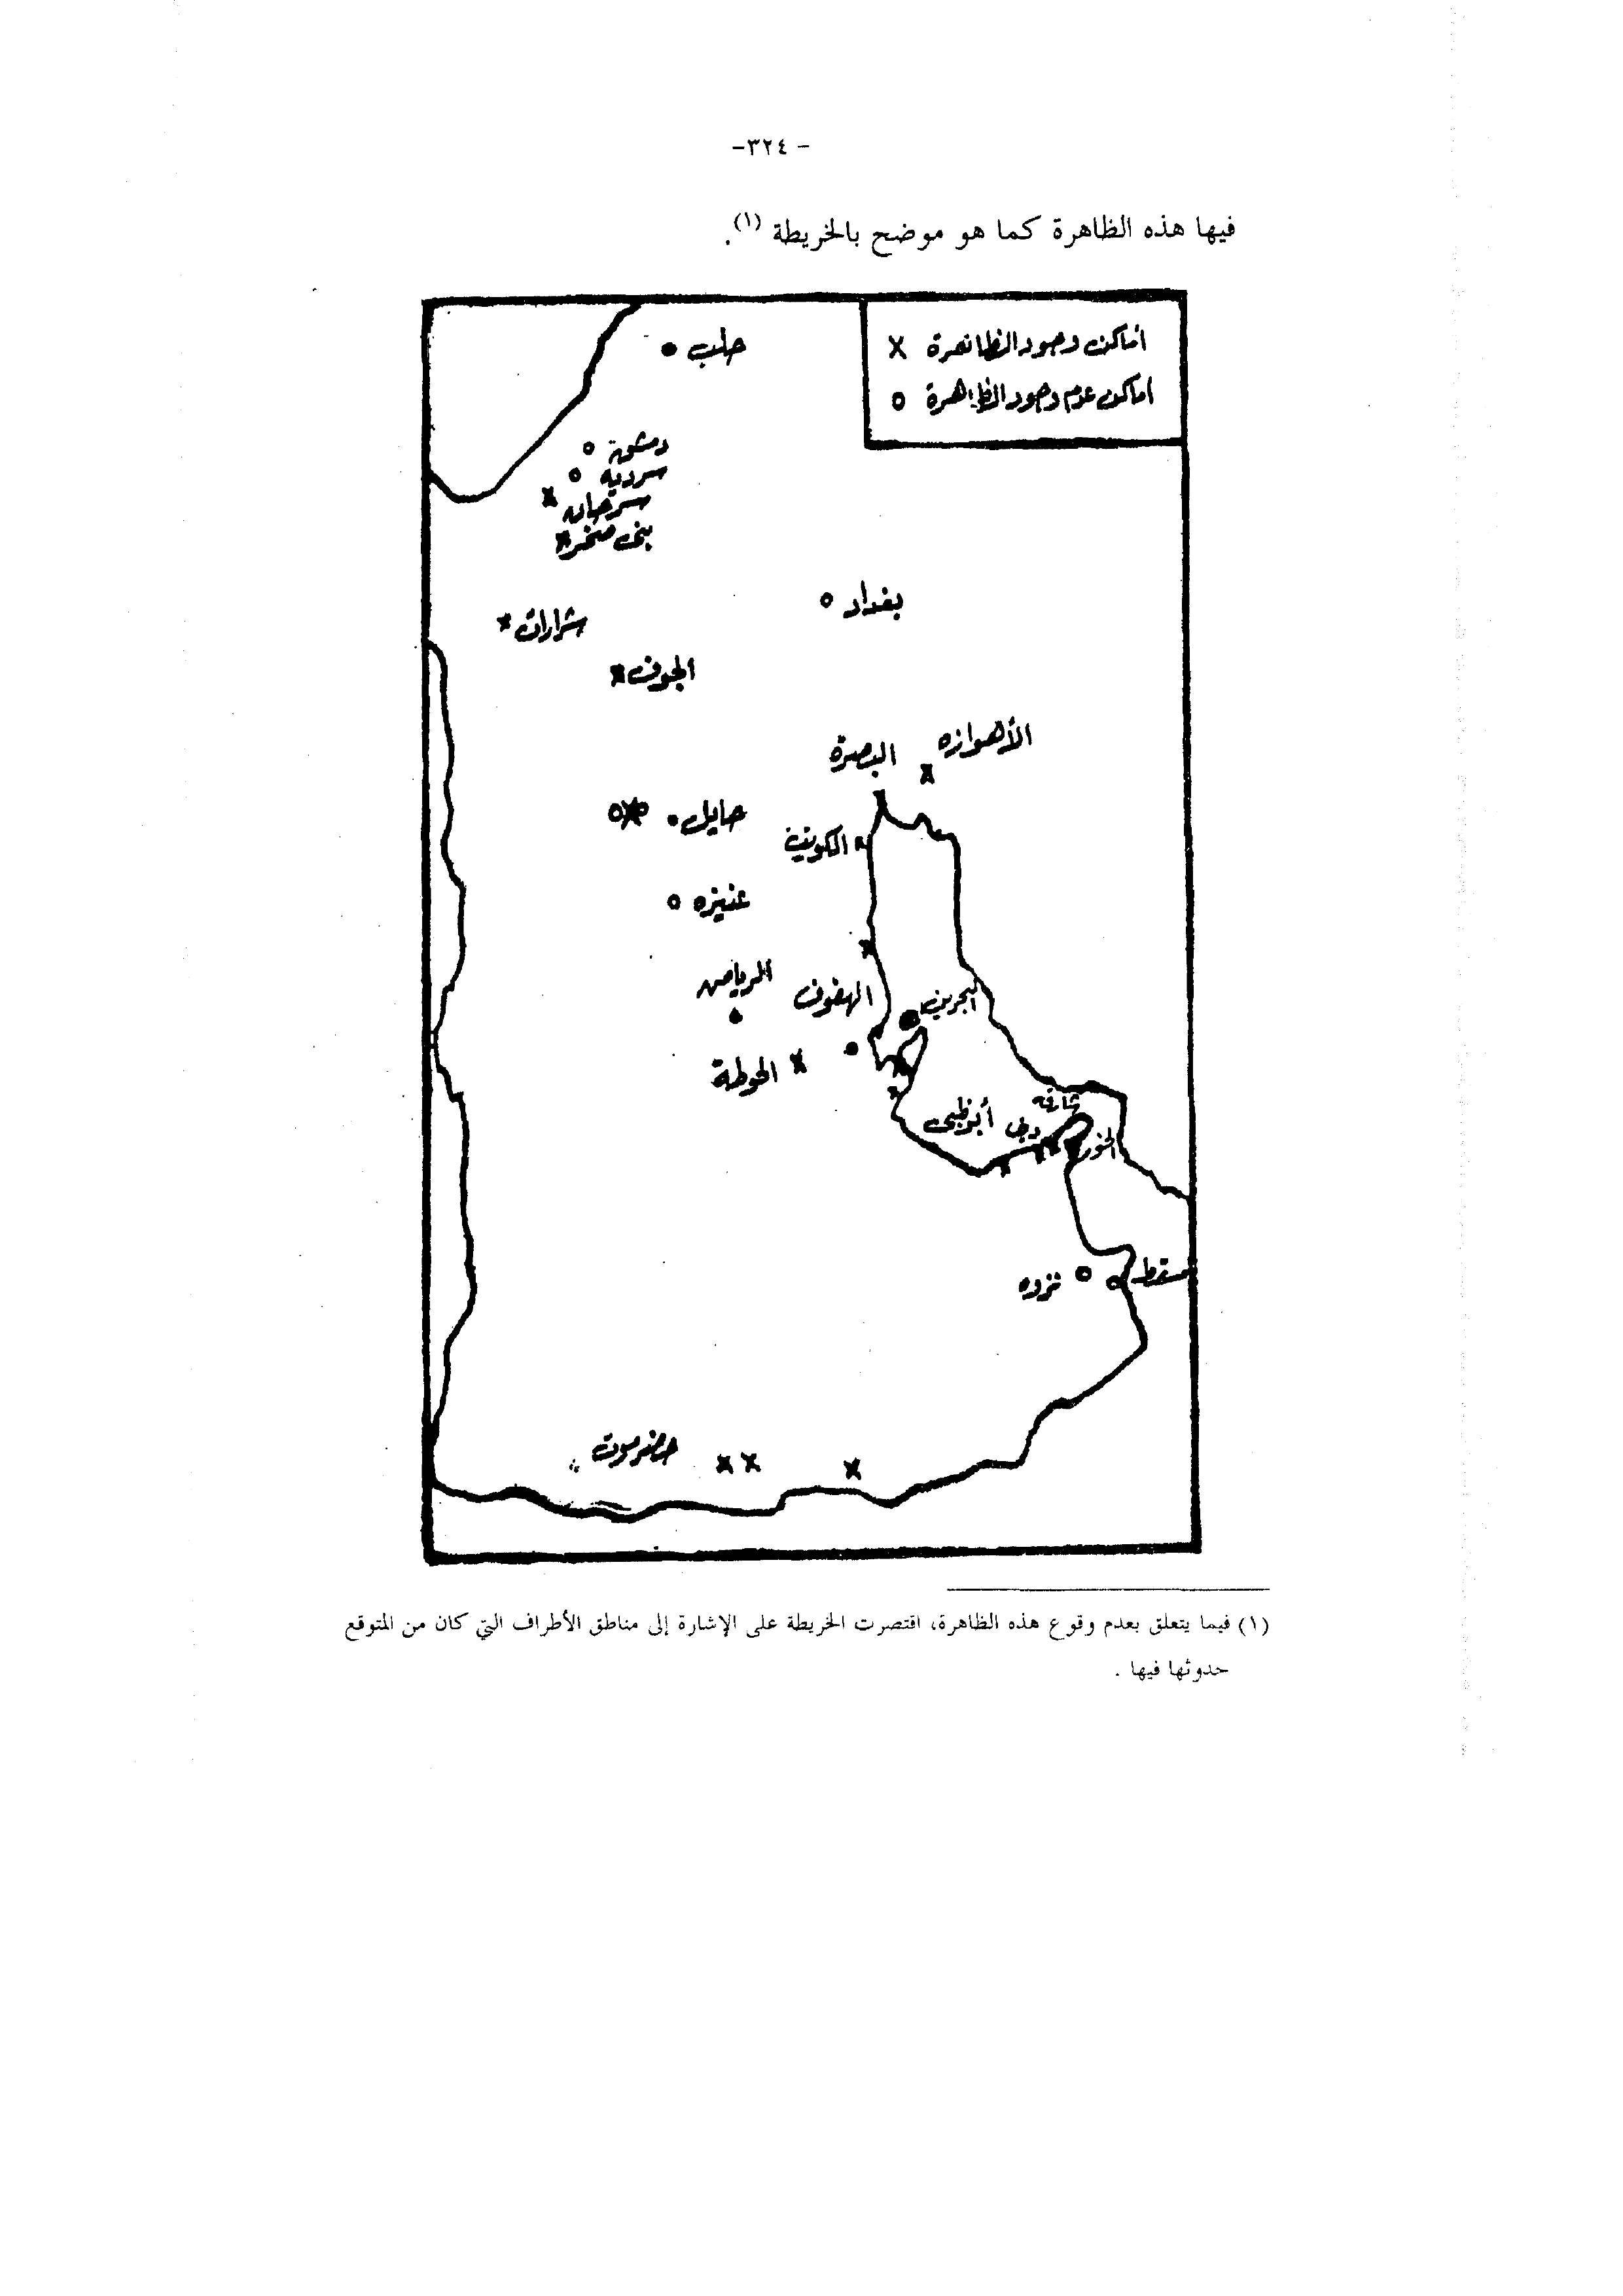 -٣٢٤ -
فيها هذه الظاهرة كما هو موضح بالخريطة (١).
أماكن وجود الظاهرة X
أماكن عدم وجود الظاهرة o
حلب
دمشق
سردية
سرحان
بني صخر
بغداد
شرارات
الجوف
الأهواز
البصرة
حايل
الكويت
عنيزه
الرياض
الهفوف
البحرين
الحوطة
شارقه
أبوظبي
دبي
الخور
مسقط
نزوه
حضرموت
(١) فيما يتعلق بعدم وقوع هذه الظاهرة، اقتصرت الخريطة على الإشارة إلى مناطق الأطراف التي كان من المتوقع
حدوثها فيها .